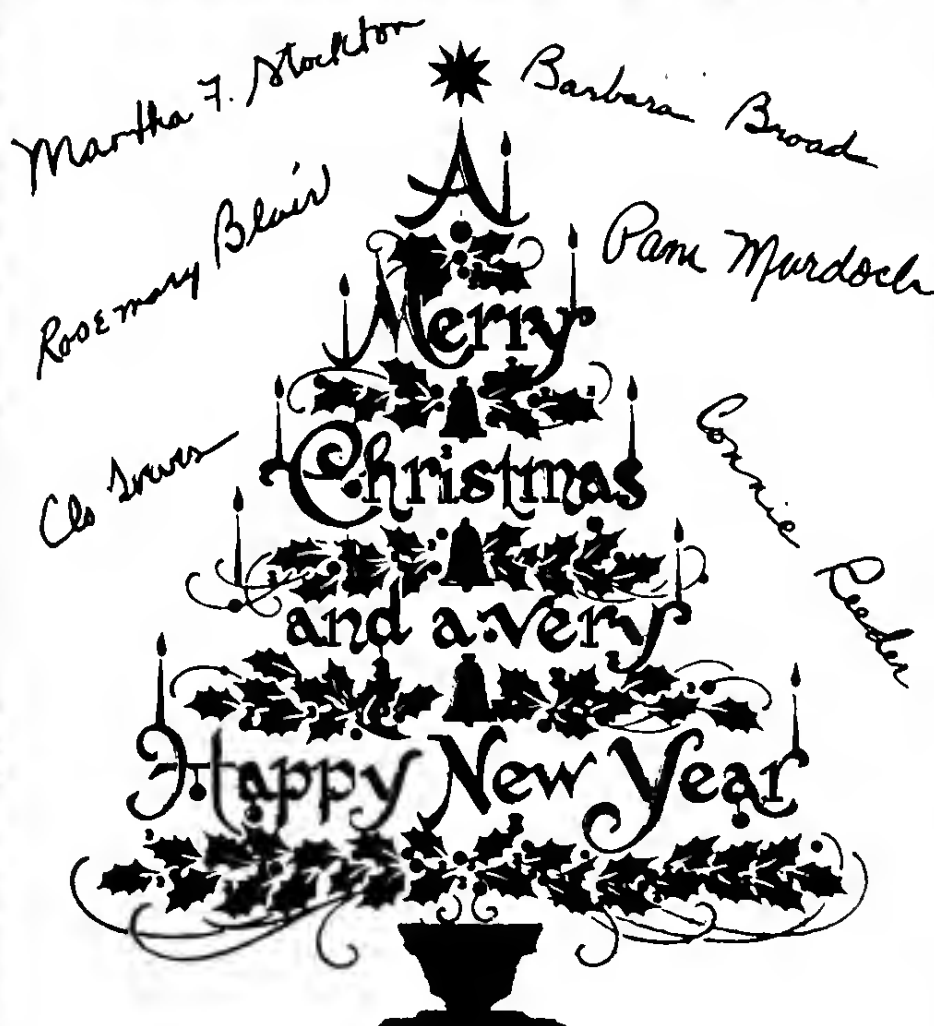 Martha F. Stockton
Barbara Broad
Rosemary Blair
Pam Murdoch
Clo
Connie Reeder
A
Merry
Christmas
and a very
Happy New Year